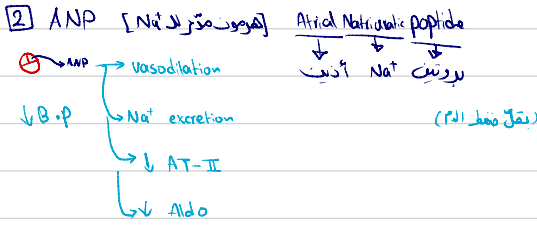 2 ANP [هرمون مدّر للـ Na⁺] Atrial Natriuratic peptide
أذين Na⁺ بروتين
ANP → vasodilation
↓ B.P → Na⁺ excretion (بقلل ضغط الدم)
→ ↓ AT-II
→ ↓ Aldo